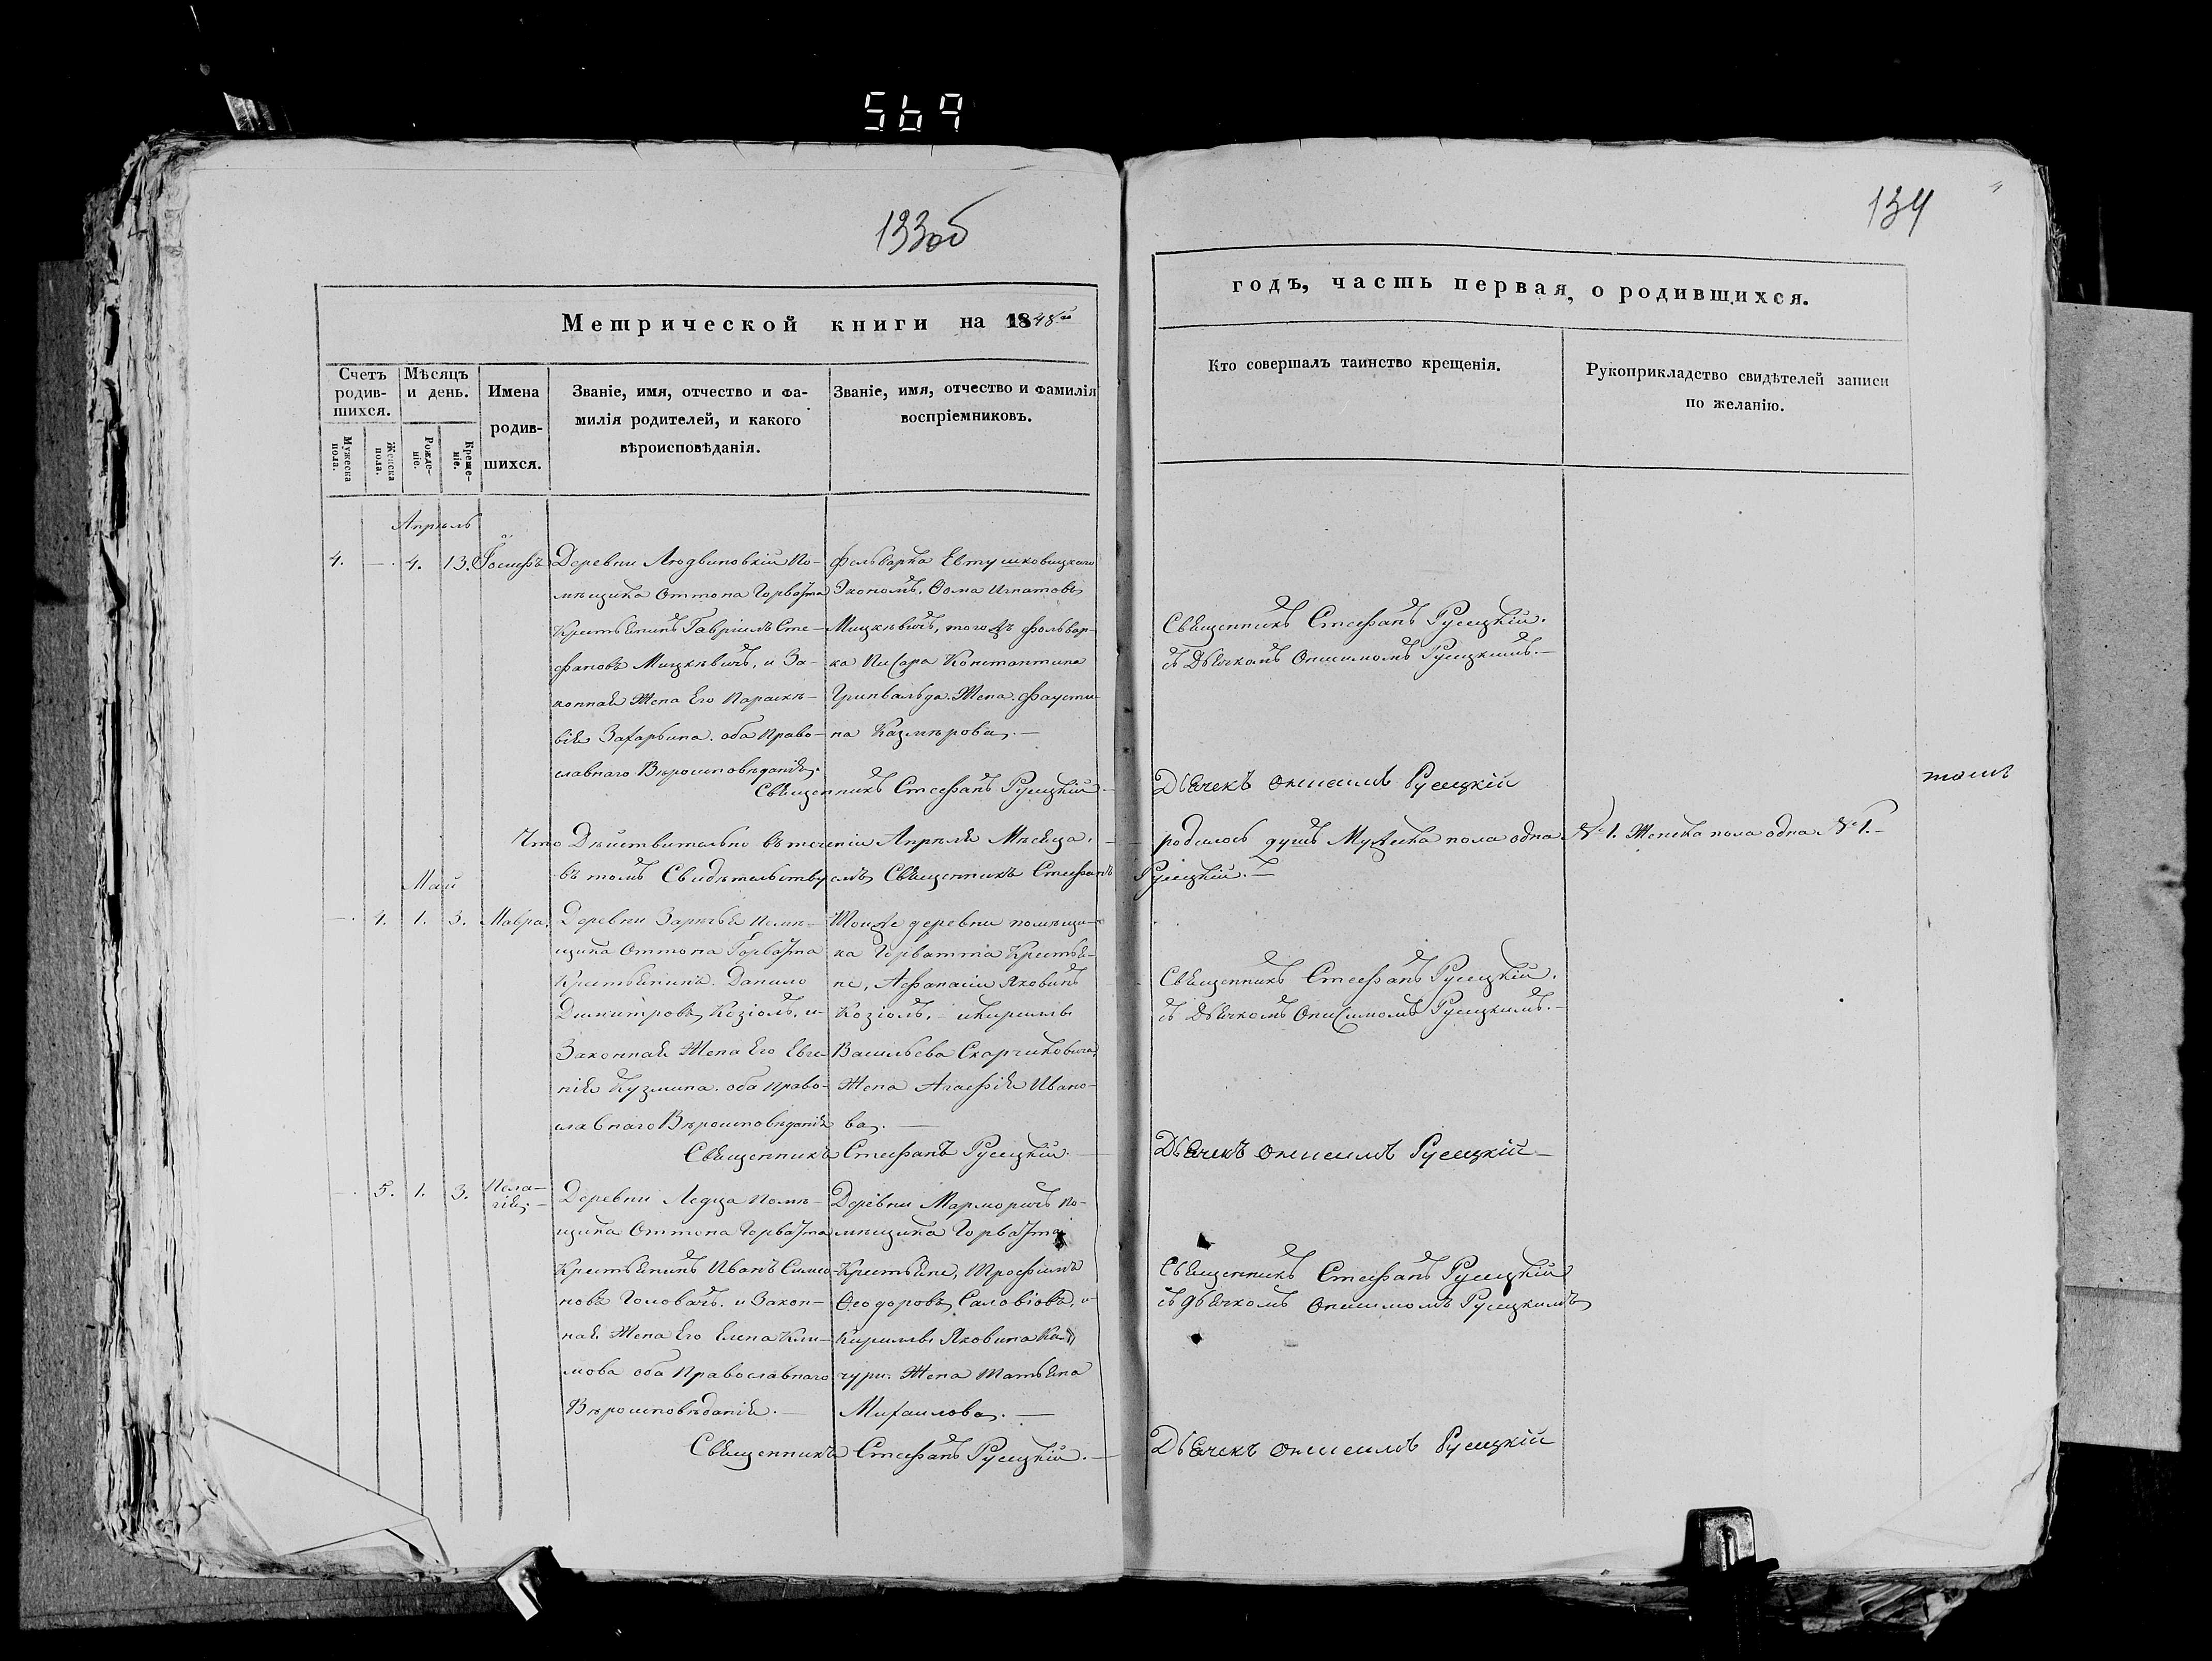 569
133об
134
Метрической книги на 1848й
годъ, часть первая, о родившихся.
Счетъ родив-шихся.
Мѣсяцъ и день.
Мужеска пола.
Женска пола.
Рожде-ніе.
Креще-ніе.
Имена родив-шихся.
Званіе, имя, отчество и фа-
милія родителей, и какого
вѣроисповѣданія.
Званіе, имя, отчество и фамилія
воспріемниковъ.
Кто совершалъ таинство крещенія.
Рукоприкладство свидѣтелей записи
по желанію.
Апрѣль
4. — 4. 13. Іосифъ
Деревни Людвиновкій По-
мѣщика Оттона Горватта
Крестьянинъ Гавріилъ Сте-
фановъ Мицкѣвичъ, и За-
конная Жена Его Параскѣ-
вія Захарьина. оба Право-
славнаго Вѣроисповѣданія.
фольварка Евтушковицкаго
Экономъ. Ѳома Игнатовъ
Мицкѣвичъ, тогожъ фольвар-
ка Писара Константина
Гринвальда. Жена. Фаусти-
на Казмѣрова. —
Священникъ Стефанъ Русецкій.
съ Дьячкомъ Онисимомъ Русецкимъ. —
Священникъ Стефанъ Русецкій. —
Дьячекъ Онисимъ Русецкій
Что Дѣйствительно въ теченіи Апрѣля Мѣсяца. — родилось душъ Мужеска пола одна №1. Женска пола одна №1. —
въ томъ Свидѣтельствуемъ Священникъ Стефанъ Русецкій. —
Май
— 4. 1. 3. Мавра,
Деревни Зарѣчья Помѣ-
щика Оттона Горватта
Крестьянинъ. Данило
Димитровъ Козіолъ, и
Законная Жена Его Евге-
нія Кузмина. оба Право-
славнаго Вѣроисповѣданія
Тойже деревни помѣщи-
ка Горватта Крестья-
не, Афанасій Яковинъ
Козіолъ, — и Кириллы
Васильева
Жена Агафія Ивано-
ва. —
Священникъ Стефанъ Русецкій.
съ Дьячкомъ Онисимомъ Русецкимъ. —
Священникъ Стефанъ Русецкій. —
Дьячекъ Онисимъ Русецкій —
— 5. 1. 3. Пела-
гія. —
Деревни Ледца Помѣ-
щика Оттона Горватта
Крестьянинъ Иванъ Симео-
новъ Головачъ. и Закон-
ная Жена Его Елена Кли-
мова оба Православнаго
Вѣроисповѣданія. —
Деревни Марморичъ По-
мѣщика Горватта
Крестьяне, Трофимъ
Ѳеодоровъ Саловіовъ, и
Кириллы Яковина
Жена Татьяна
Михаилова. —
Священникъ Стефанъ Русецкій
съ дьячкомъ Онисимомъ Русецкимъ
Священникъ Стефанъ Русецкій. —
Дьячекъ Онисимъ Русецкій